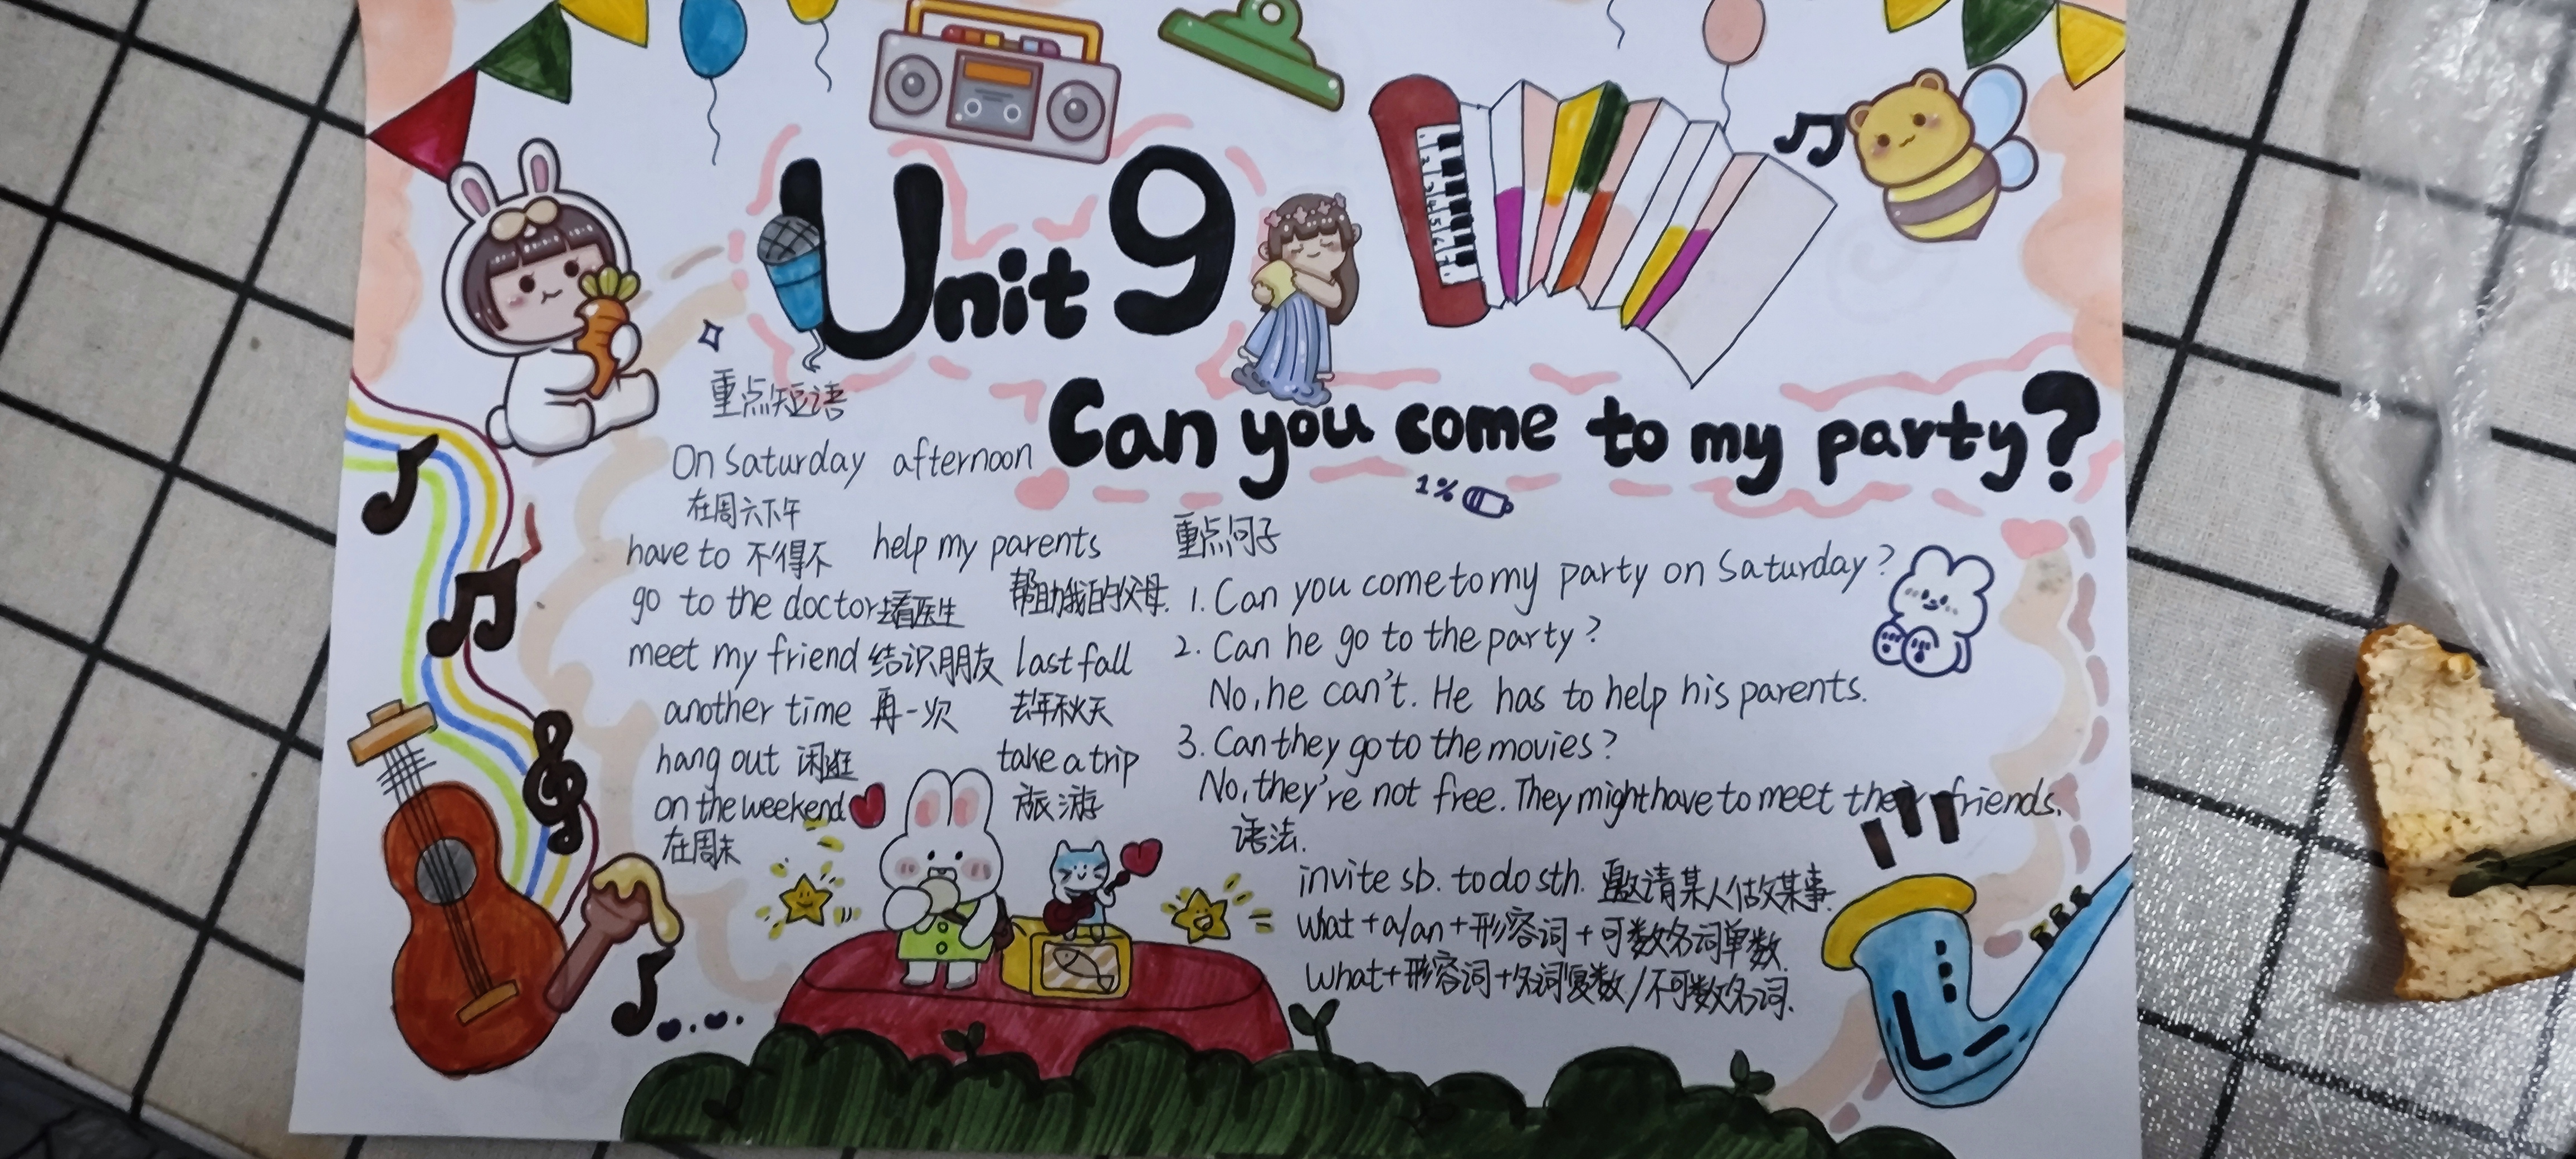 Unit 9
Can you come to my party?
1%
重点短语
On Saturday afternoon
在周六下午
have to 不得不
help my parents
帮助我的父母.
go to the doctor去看医生
meet my friend 结识朋友
last fall
去年秋天
another time 再一次
hang out 闲逛
take a trip
旅游
on the weekend
在周末
重点句子
1. Can you come to my party on Saturday?
2. Can he go to the party?
No, he can't. He has to help his parents.
3. Can they go to the movies?
No, they're not free. They might have to meet their friends.
语法.
invite sb. to do sth. 邀请某人做某事.
what+a/an+形容词+可数名词单数.
what+形容词+名词复数/不可数名词.